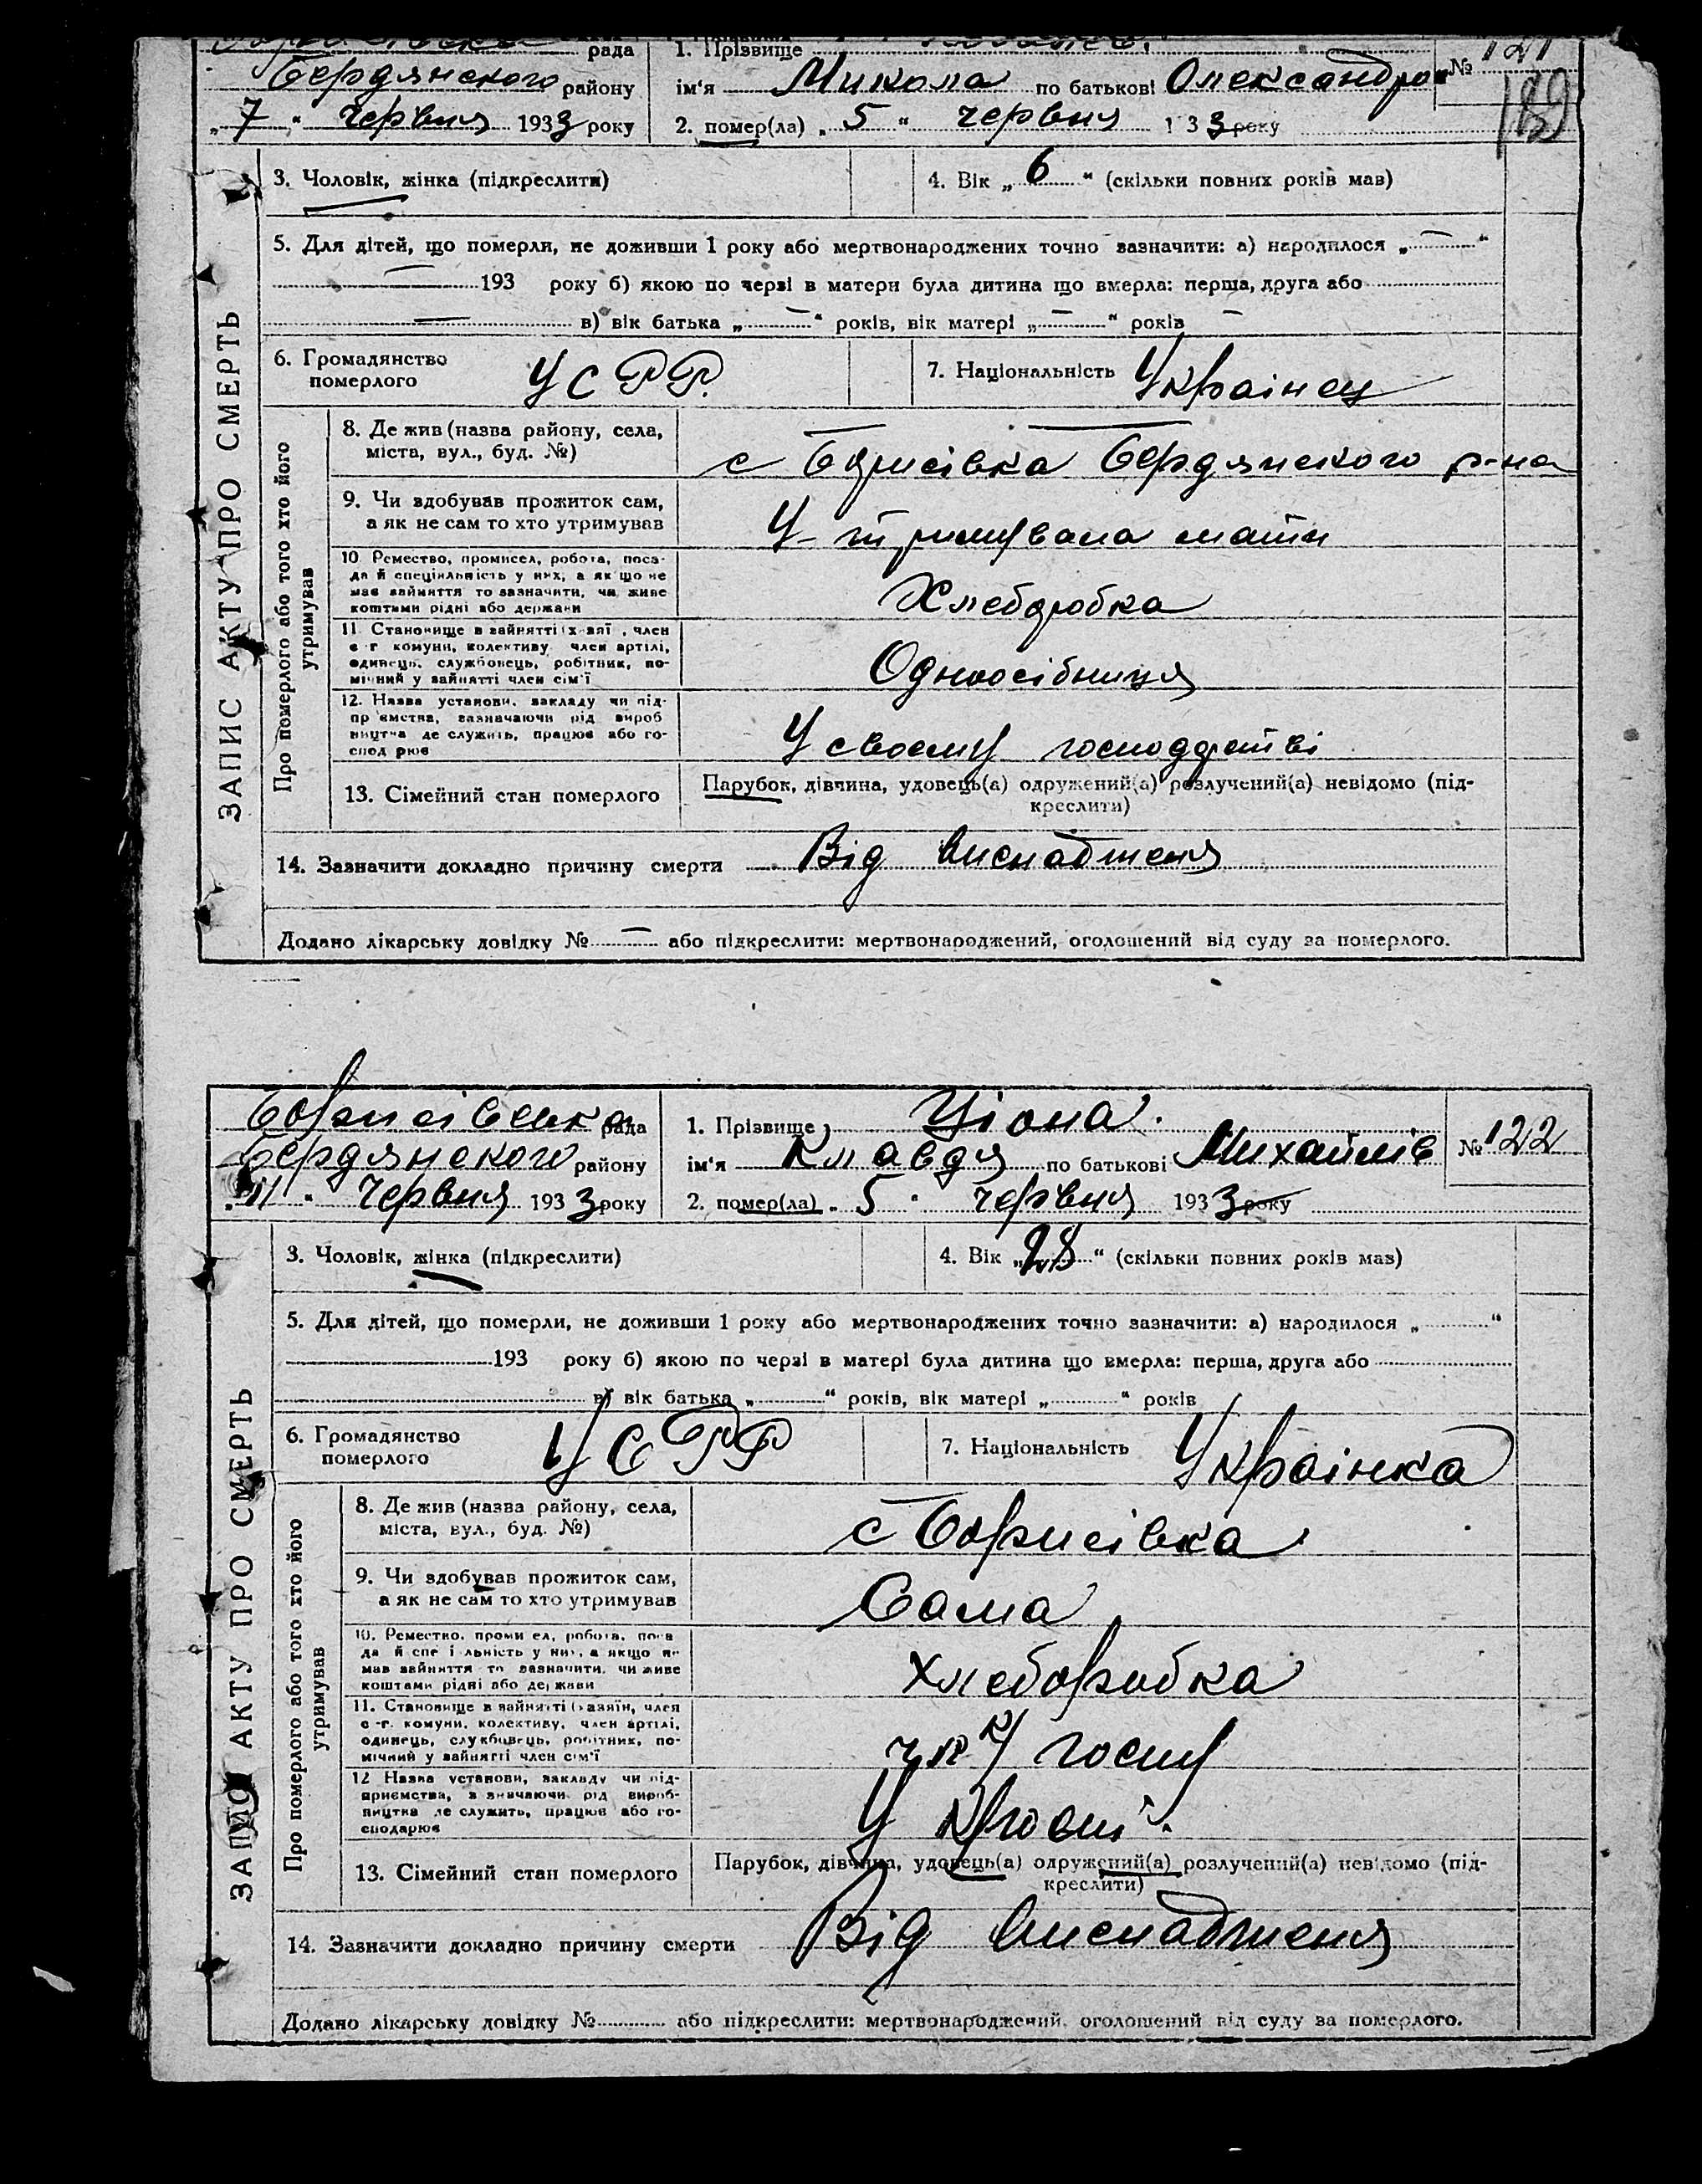 рада 1. Прізвище № 121
Бердянского району ім'я Микола по батькові Олександров
„ 7 “ червня 1933 року 2. помер(ла) „ 5 “ червня 1 3 3 року
3. Чоловік, жінка (підкреслити) 4. Вік „ 6 “ (скільки повних років мав)
5. Для дітей, що померли, не доживши 1 року або мертвонароджених точно зазначити: а) народилося „ — “
— 193 року б) якою по черзі в матери була дитина що вмерла: перша, друга або
— в) вік батька „ — “ років, вік матері „ — “ років —
6. Громадянство померлого УСРР. 7. Національність Українец
ЗАПИС АКТУ ПРО СМЕРТЬ
Про померлого або того хто його утримував
8. Де жив (назва району, села,
міста, вул., буд. №)
с Борисівка Бердянского р-на
9. Чи здобував прожиток сам,
а як не сам то хто утримував
У-тримувала мати
10 Ремество, промисел, робота, поса-
да й спеціяльність у них, а якщо не
має зайняття то зазначити, чи живе
коштами рідні або держави
Хлеборобка
11. Становище в зайнятті , член
с-г комуни, колективу член артілі,
одинець, службовець, робітник, по-
мічний у зайнятті член сім'ї
Одноосібниця
12. Назва установи, закладу чи під-
пр ємства, зазначаючи рід вироб
ництва де служить, працює або го-
спод рює
У своему господарстві
13. Сімейний стан померлого Парубок, дівчина, удовець(а) одружений(а) розлучений(а) невідомо (під-
креслити)
14. Зазначити докладно причину смерти Від виснаження
Додано лікарську довідку № — або підкреслити: мертвонароджений, оголошений від суду за померлого.
Борисівська рада 1. Прізвище Ціона. № 122
Бердянского району ім'я Клавдя по батькові Михайлів
„ 11 “ червня 1933 року 2. помер(ла) „ 5 “ червня 1933 року
3. Чоловік, жінка (підкреслити) 4. Вік „ 28 “ (скільки повних років мав)
5. Для дітей, що померли, не доживши 1 року або мертвонароджених точно зазначити: а) народилося „ “
193 року б) якою по черзі в матері була дитина що вмерла: перша, друга або
в) вік батька „ “ років, вік матері „ “ років
6. Громадянство померлого УСРР 7. Національність Українка
ЗАПИС АКТУ ПРО СМЕРТЬ
Про померлого або того хто його утримував
8. Де жив (назва району, села,
міста, вул., буд. №)
с Борисівка
9. Чи здобував прожиток сам,
а як не сам то хто утримував
Сама
10. Ремество, проми ел, робота, поса
да й спе і льність у них, а якщо не
мав зайняття то зазначити, чи живе
коштами рідні або держави
хлеборобка
11. Становище в зайнятті (хазяїн, член
с-г. комуни, колективу, член артілі,
одинець, службовець, робітник, по-
мічний у зайнятті член сім'ї
12 Назва установи, закладу чи під-
приємства, зазначаючи рід вироб-
ництва де служить, працює або го-
сподарює
13. Сімейний стан померлого Парубок, дівчина, удовець(а) одружений(а) розлучений(а) невідомо (під-
креслити)
14. Зазначити докладно причину смерти Від виснаження
Додано лікарську довідку № або підкреслити: мертвонароджений, оголошений від суду за померлого.